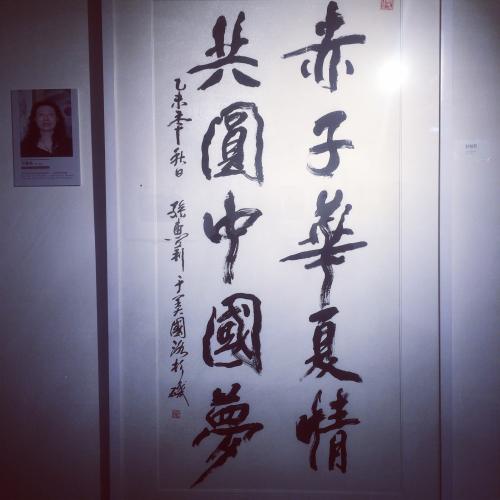 赤子華夏情
共圓中國夢
乙未年秋日 張惠莉于美國洛杉磯